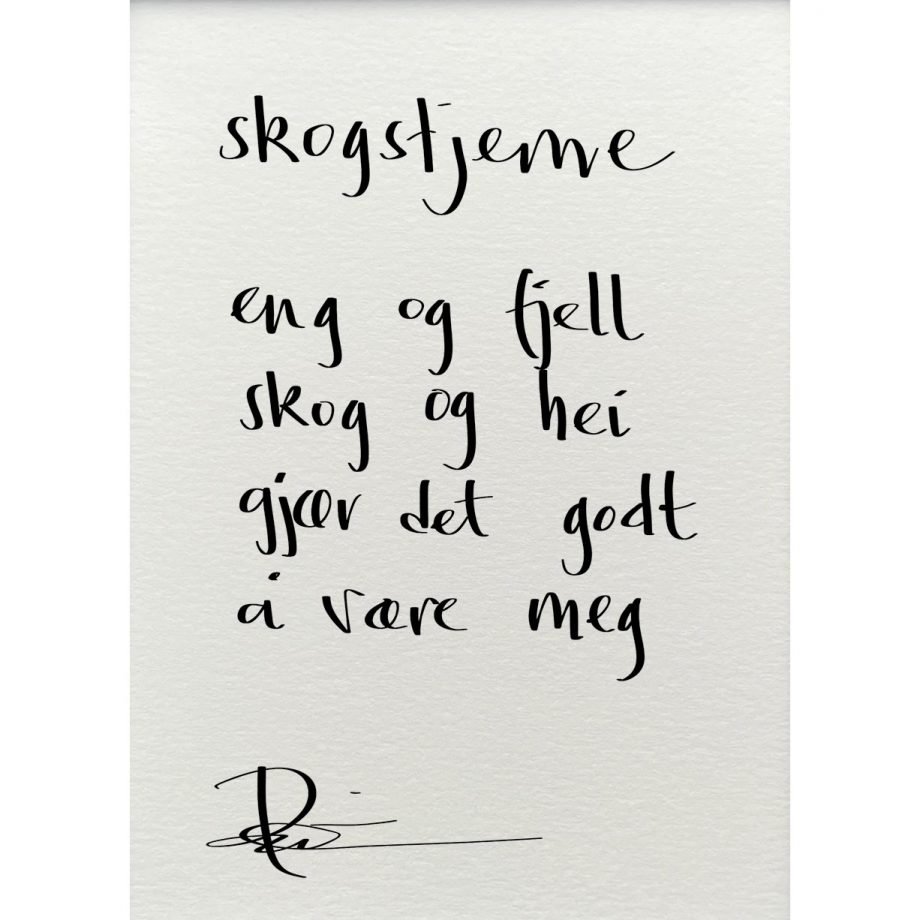 skogstjerne
eng og fjell
skog og hei
gjær det godt
å være meg